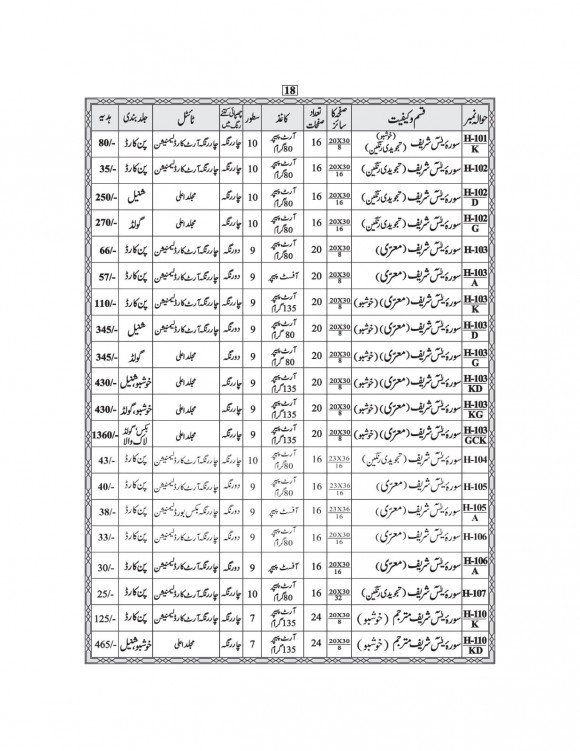 18
حوالہ نمبر قسم و کیفیت صفحہ کا سائز تعداد صفحات کاغذ سطور چھپائی کتنے رنگ میں ٹائٹل جلد بندی ہدیہ
H-101 K سورۂ یٰسٓ شریف (تجویدی رنگین) (خوشبو) 20X30 8 16 آرٹ پیپر 80گرام 10 چار رنگہ چار رنگہ آرٹ کارڈ لیمنیشن پن کارڈ 80/-
H-102 سورۂ یٰسٓ شریف (تجویدی رنگین) 20X30 16 16 آرٹ پیپر 80گرام 10 چار رنگہ چار رنگہ آرٹ کارڈ لیمنیشن پن کارڈ 35/-
H-102 D سورۂ یٰسٓ شریف (تجویدی رنگین) 20X30 16 16 آرٹ پیپر 80گرام 10 چار رنگہ مجلد اعلی شنیل 250/-
H-102 G سورۂ یٰسٓ شریف (تجویدی رنگین) 20X30 16 16 آرٹ پیپر 80گرام 10 چار رنگہ مجلد اعلی گولڈ 270/-
H-103 سورۂ یٰسٓ شریف (معرّی) 20X30 8 20 آرٹ پیپر 80گرام 9 دو رنگہ چار رنگہ آرٹ کارڈ لیمنیشن پن کارڈ 66/-
H-103 A سورۂ یٰسٓ شریف (معرّی) 20X30 8 20 آفسٹ پیپر 9 دو رنگہ چار رنگہ آرٹ کارڈ لیمنیشن پن کارڈ 57/-
H-103 K سورۂ یٰسٓ شریف (معرّی) (خوشبو) 20X30 8 20 آرٹ پیپر 135گرام 9 چار رنگہ چار رنگہ آرٹ کارڈ لیمنیشن پن کارڈ 110/-
H-103 D سورۂ یٰسٓ شریف (معرّی) 20X30 8 20 آرٹ پیپر 80 گرام 9 دو رنگہ چار رنگہ آرٹ کارڈ لیمنیشن شنیل 345/-
H-103 G سورۂ یٰسٓ شریف (معرّی) 20X30 8 20 آرٹ پیپر 80 گرام 9 دو رنگہ مجلد اعلی گولڈ 345/-
H-103 KD سورۂ یٰسٓ شریف (معرّی) (خوشبو) 20X30 8 20 آرٹ پیپر 135گرام 9 چار رنگہ مجلد اعلی خوشبو، شنیل 430/-
H-103 KG سورۂ یٰسٓ شریف (معرّی) (خوشبو) 20X30 8 20 آرٹ پیپر 135گرام 9 چار رنگہ مجلد اعلی خوشبو، گولڈ 430/-
H-103 GCK سورۂ یٰسٓ شریف (معرّی) (خوشبو) 20X30 8 20 آرٹ پیپر 135گرام 9 چار رنگہ مجلد اعلی بکس، گولڈ لاک والا 1360/-
H-104 سورۂ یٰسٓ شریف (تجویدی رنگین) 23X36 16 16 آرٹ پیپر 80گرام 10 چار رنگہ چار رنگہ آرٹ کارڈ لیمنیشن پن کارڈ 43/-
H-105 سورۂ یٰسٓ شریف (معرّی) 23X36 16 16 آرٹ پیپر 80گرام 9 دو رنگہ چار رنگہ آرٹ کارڈ لیمنیشن پن کارڈ 40/-
H-105 A سورۂ یٰسٓ شریف (معرّی) 23X36 16 16 آفسٹ پیپر 9 دو رنگہ چار رنگہ بکس بورڈ لیمنیشن پن کارڈ 38/-
H-106 سورۂ یٰسٓ شریف (معرّی) 20X30 16 16 آرٹ پیپر 80گرام 9 دو رنگہ چار رنگہ آرٹ کارڈ لیمنیشن پن کارڈ 33/-
H-106 A سورۂ یٰسٓ شریف (معرّی) 20X30 16 16 آفسٹ پیپر 9 دو رنگہ چار رنگہ آرٹ کارڈ لیمنیشن پن کارڈ 30/-
H-107 سورۂ یٰسٓ شریف (تجویدی رنگین) 20X30 32 16 آرٹ پیپر 80گرام 10 چار رنگہ چار رنگہ آرٹ کارڈ لیمنیشن پن کارڈ 25/-
H-110 K سورۂ یٰسٓ شریف مترجم (خوشبو) 20X30 8 24 آرٹ پیپر 135گرام 7 چار رنگہ چار رنگہ آرٹ کارڈ لیمنیشن پن کارڈ 125/-
H-110 KD سورۂ یٰسٓ شریف مترجم (خوشبو) 20X30 8 24 آرٹ پیپر 135گرام 7 چار رنگہ مجلد اعلی خوشبو، شنیل 465/-